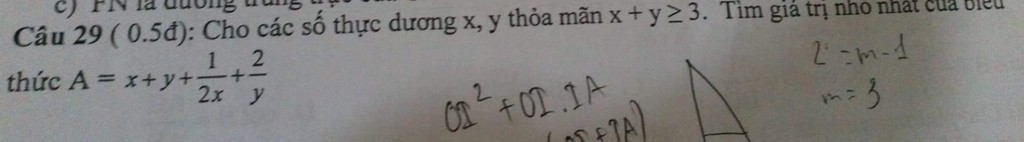 c) FN là đường trung trực của
Câu 29 ( 0.5đ): Cho các số thực dương x, y thỏa mãn x + y ≥ 3. Tìm giá trị nhỏ nhất của biểu
thức A = x + y + 1/2x + 2/y
2 = m - 1
m = 3
OI² + OI.IA